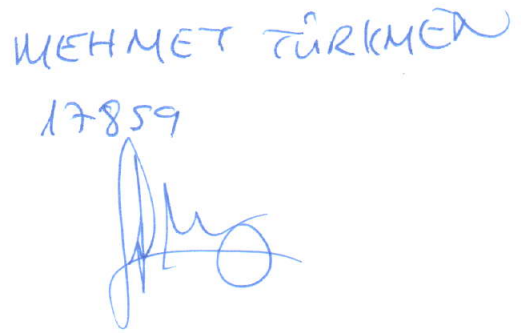 MEHMET TÜRKMEN
17859